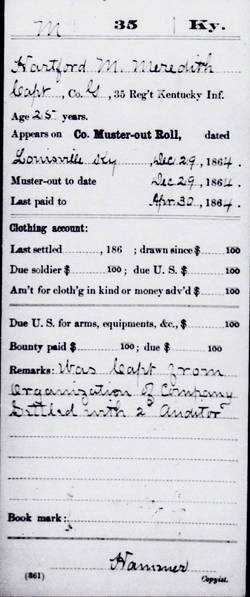 M 35 Ky.
Hartford M. Meredith
Capt, Co. G, 35 Reg't Kentucky Inf.
Age 25 years.
Appears on Co. Muster-out Roll, dated
Louisville Ky, Dec 29, 1864.
Muster-out to date Dec 29, 1864.
Last paid to Apr. 30, 1864.
Clothing account:
Last settled , 186 ; drawn since $ 100
Due soldier $ 100; due U. S. $ 100
Am't for cloth'g in kind or money adv'd $ 100
Due U. S. for arms, equipments, &c., $ 100
Bounty paid $ 100; due $ 100
Remarks: Was Capt from
Organization of Company
Settled with 2d Auditor
Book mark:
Hammer
(861) Copyist.